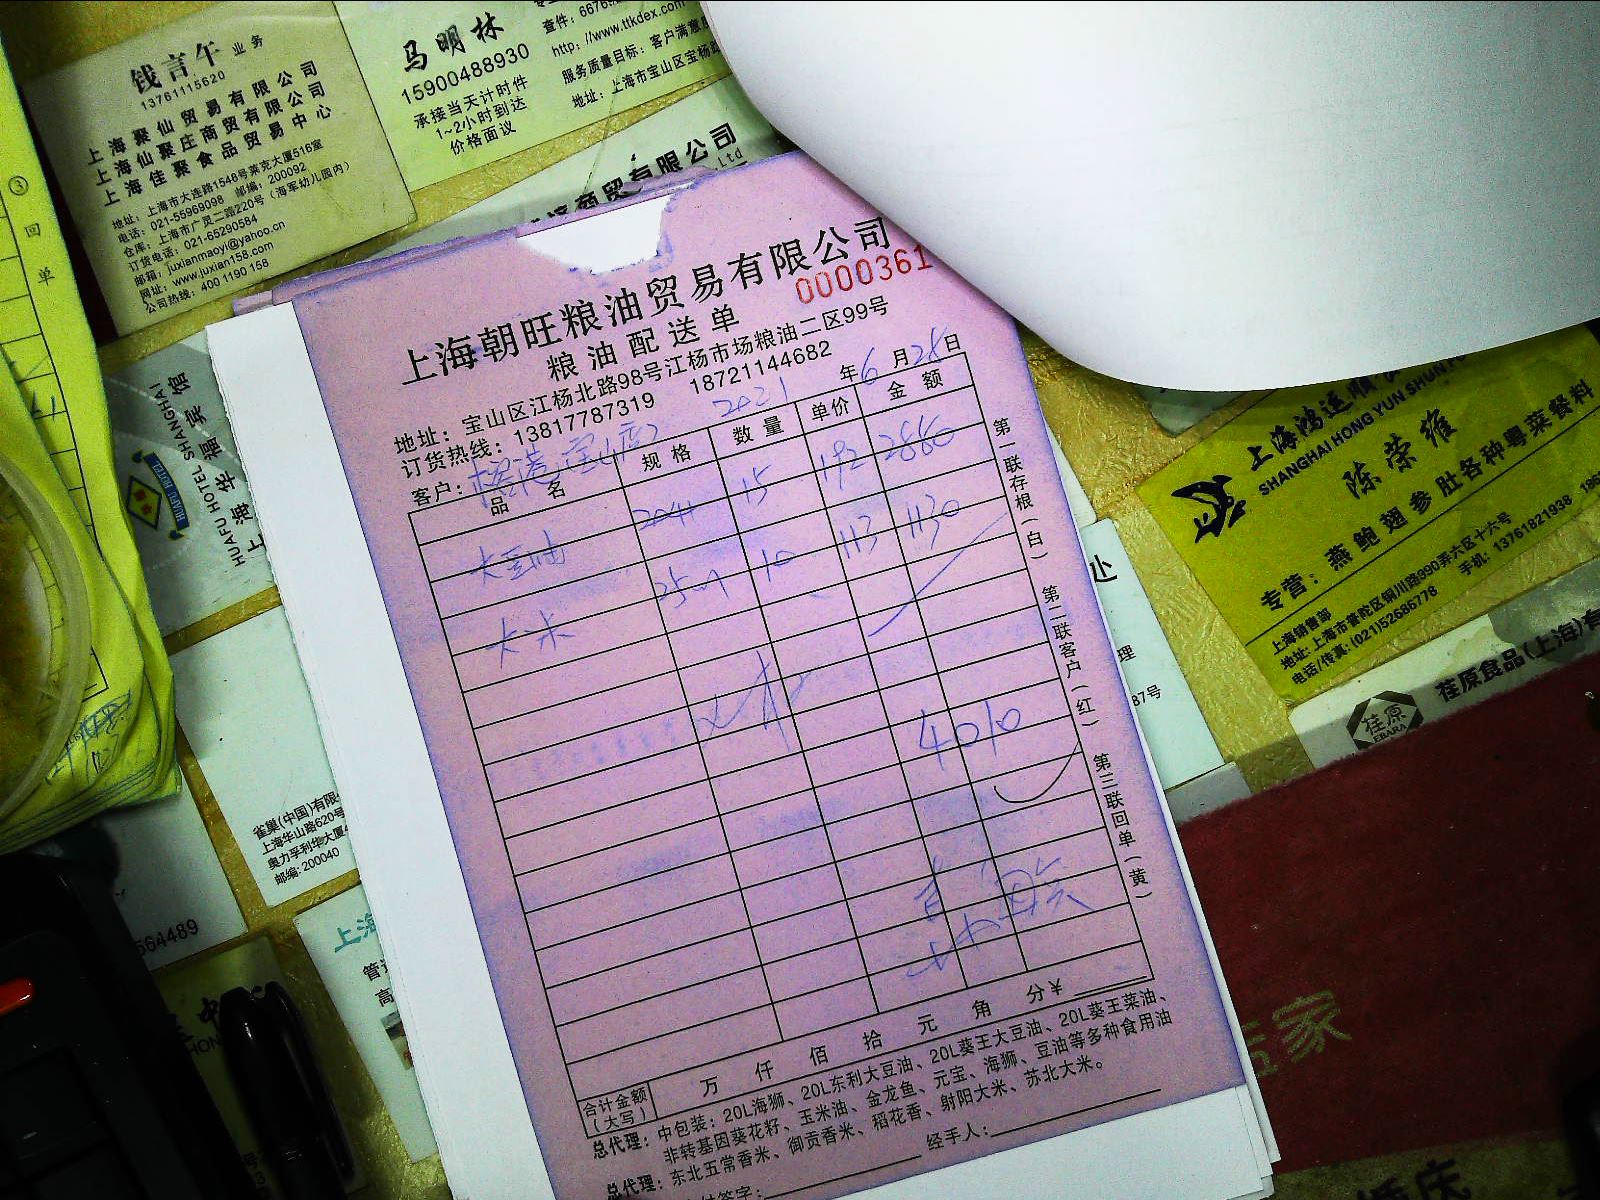 钱言午 业务
13761115620
上海聚仙贸易有限公司
上海仙聚庄商贸有限公司
上海佳聚食品贸易中心
地址：上海市大连路1548号莱克大厦516室
电话：021-55969098 邮编：200092
仓库：上海市广灵二路220号（海军幼儿园内）
订货电话：021-65290584
邮箱：juxianmaoyi@yahoo.cn
网址：www.juxian158.com
公司热线：400 1190 158
马明林
15900488930
承接当天计时件
1~2小时到达
价格面议
http://www.ttkdex.com
服务质量目标：客户满意
地址：上海市宝山区宝杨
商贸有限公司
Ltd
③ 回单
上海朝旺粮油贸易有限公司
0000361
粮油配送单
地址：宝山区江杨北路98号江杨市场粮油二区99号
订货热线：13817787319 18721144682
客户：
2021年6月28日
品名 规格 数量 单价 金额
大豆油 15 192 2880
大米 10 113 1130
4010
第一联存根（白） 第二联客户（红） 第三联回单（黄）
合计金额（大写） 万 仟 佰 拾 元 角 分¥
总代理：中包装：20L海狮、20L东利大豆油、20L葵王大豆油、20L葵王菜油、
非转基因葵花籽、玉米油、金龙鱼、元宝、海狮、豆油等多种食用油
总代理：东北五常香米、御贡香米、稻花香、射阳大米、苏北大米。
经手人：
签字：
HUAFU HOTEL SHANGHAI
上海华福宾馆
雀巢(中国)有限
上海华山路620号
奥力孚利华大厦
邮编：200040
564489
上海
处
理
87号
上海鸿运顺
SHANGHAI HONG YUN SHUN
陈荣雍
专营：燕鲍翅参肚各种粤菜餐料
上海销售部
地址：上海市普陀区铜川路990弄六区十六号
电话/传真：(021)52686778 手机：13761821938
荏原
EBARA
荏原食品(上海)有
家